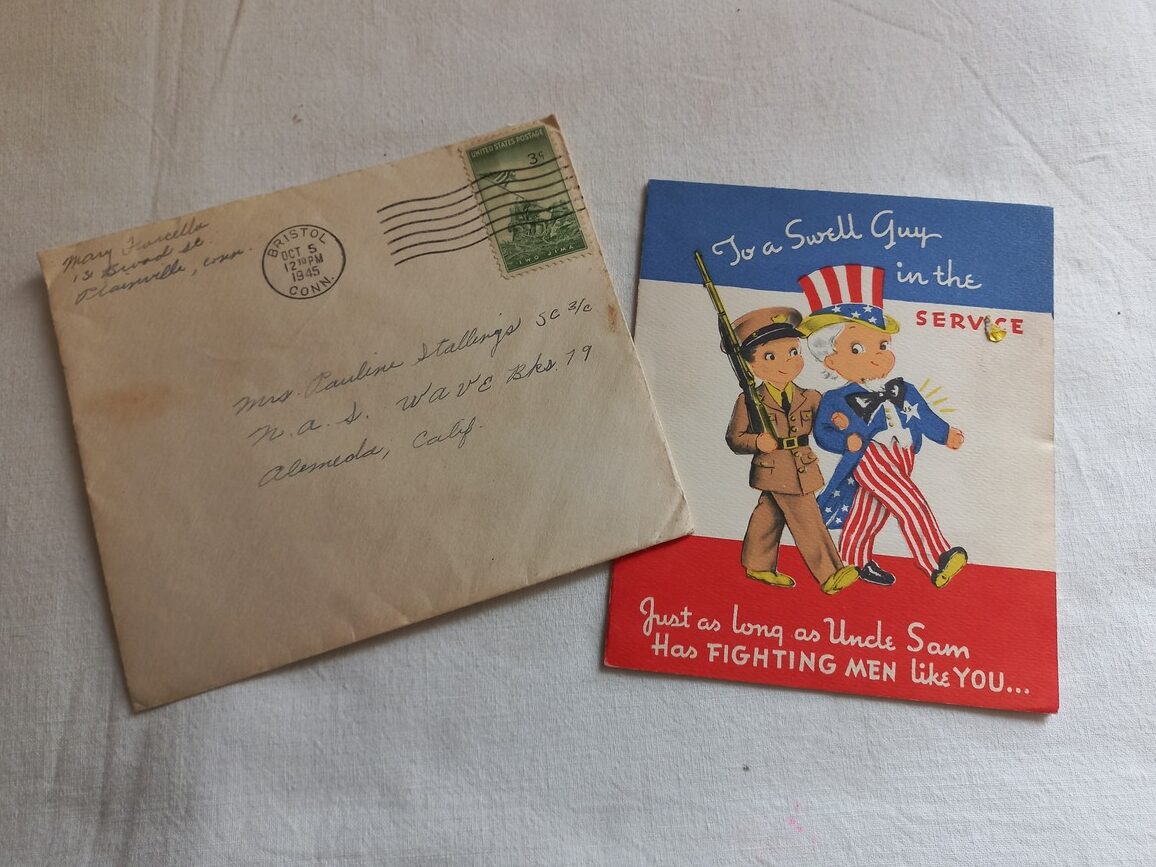 Mary Fiorello
131 Broad St.
Plainville, Conn.
BRISTOL
OCT 5
12 30 PM
1945
CONN.
UNITED STATES POSTAGE
3¢
IWO JIMA
Mrs. Pauline Stallings SC 3/c
N.A.S. WAVE Bks. 79
Alemeda, Calif.
To a Swell Guy
in the
SERVICE
Just as long as Uncle Sam
Has FIGHTING MEN like YOU...